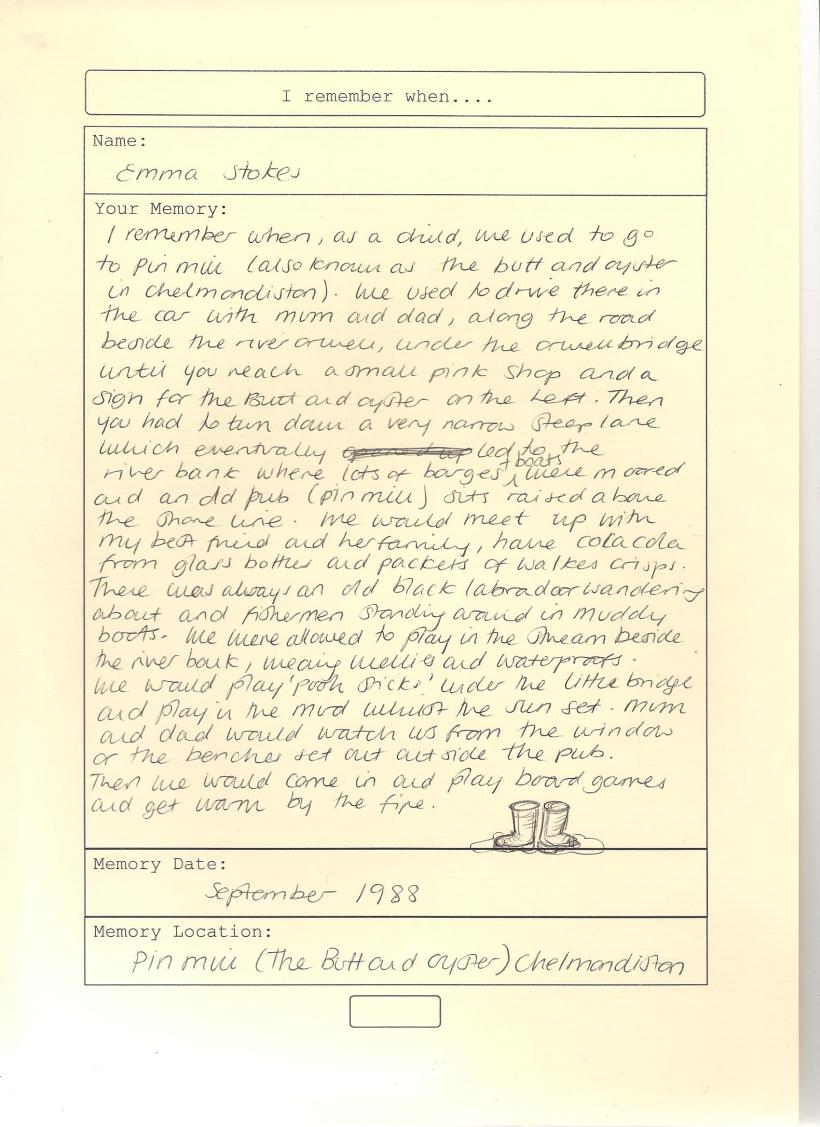 I remember when....
Name:
Emma Stokes
Your Memory:
I remember when, as a child, we used to go
to Pin mill (also known as the butt and oyster
in chelmondiston). We used to drive there in
the car with mum and dad, along the road
beside the river orwell, under the orwell bridge
until you reach a small pink shop and a
sign for the Butt and oyster on the left. Then
you had to turn down a very narrow steep lane
which eventually opened up led to the
river bank where lots of barges + boats were moored
and an old pub (pin mill) sits raised above
the shore line. We would meet up with
my best friend and her family, have cola cola
from glass bottles and packets of walkes crisps.
There was always an old black labradoor wandering
about and fishermen standing around in muddy
boots. We were allowed to play in the stream beside
the river bank, wearing wellies and waterproofs.
We would play 'pooh sticks' under the little bridge
and play in the mud whilst the sun set. Mum
and dad would watch us from the window
or the benches set out outside the pub.
Then we would come in and play board games
and get warm by the fire.
Memory Date:
September 1988
Memory Location:
Pin mill (The Butt and oyster) Chelmondiston